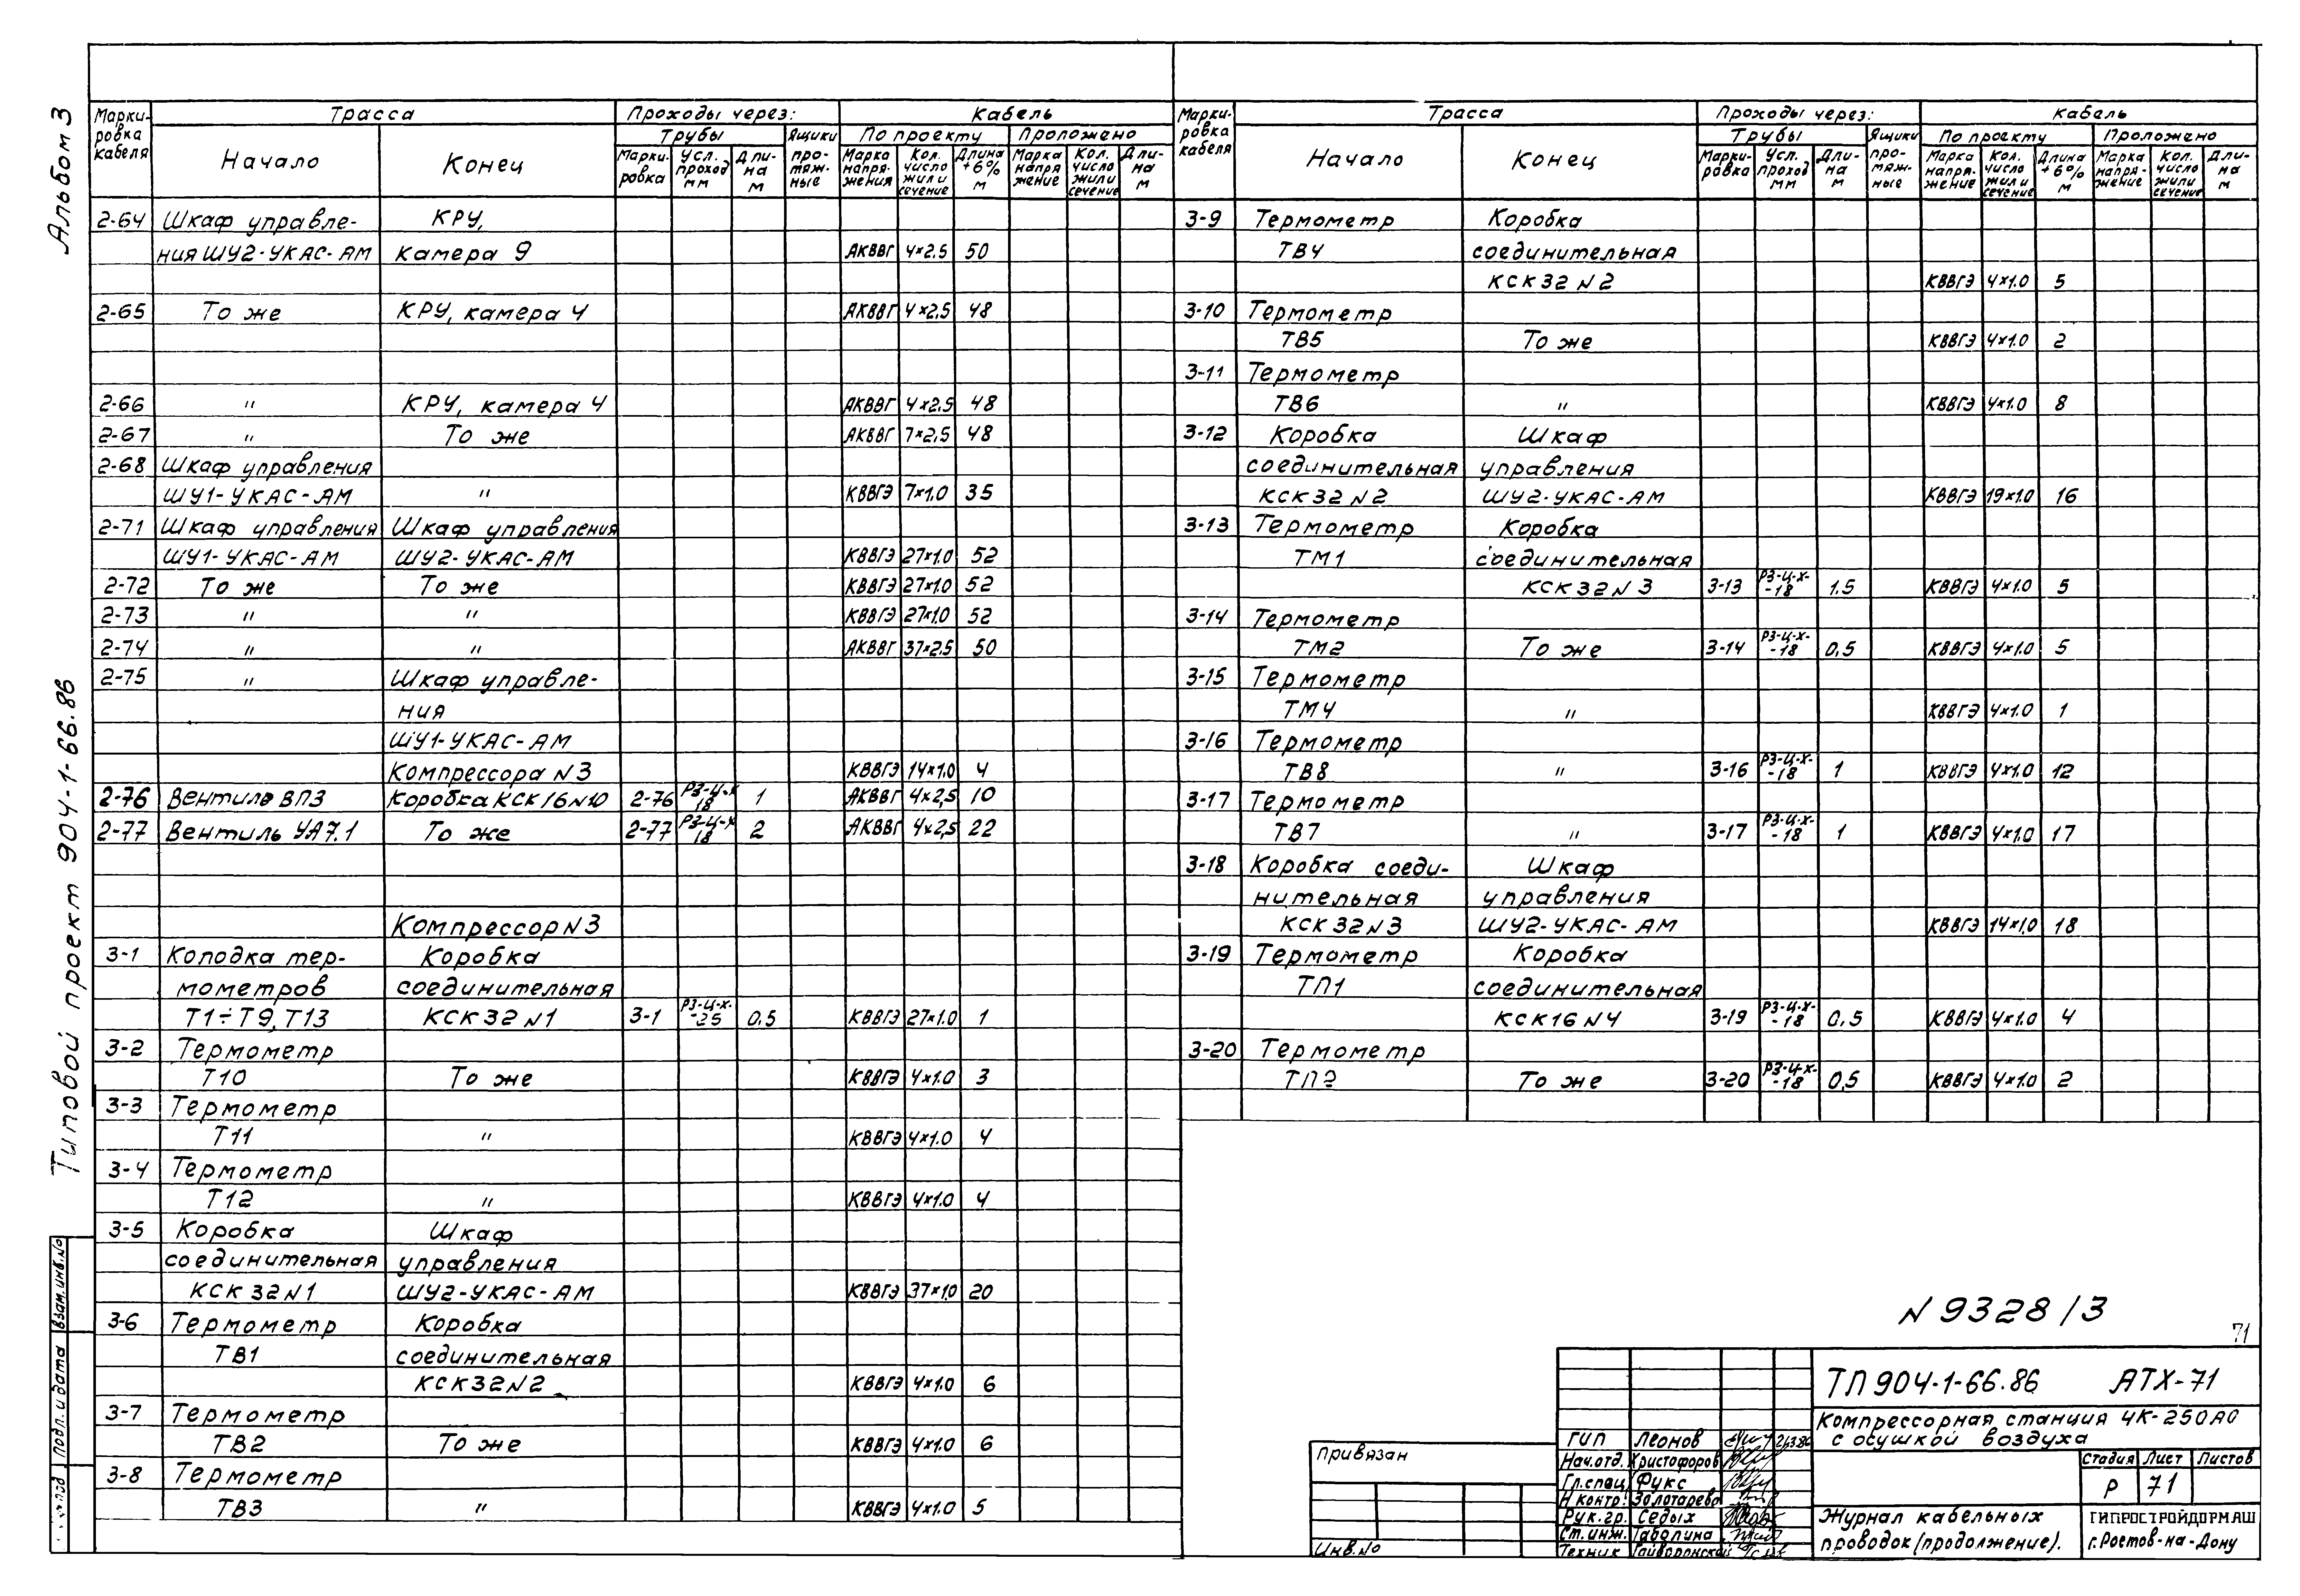 Альбом 3
Типовой проект 904-1-66.86
Взам. инв. №
Подп. и дата
Марки-ровка кабеля | Трасса | Проходы через: | Кабель
Трубы | Ящики про-тяж-ные | По проекту | Проложено
Начало | Конец | Марки-ровка | Усл. проход мм | Дли-на м | Марка напря-жения | Кол. число жил и сечение | Длина +6% м | Марка напря жение | Кол. число жил и сечение | Дли-на м
2-64 Шкаф управле- КРУ,
ния ШУ2-УКАС-АМ камера 9 АКВВГ 4×2.5 50
2-65 То же КРУ, камера 4 АКВВГ 4×2,5 48
2-66 " КРУ, камера 4 АКВВГ 4×2.5 48
2-67 " То же АКВВГ 7×2.5 48
2-68 Шкаф управления
ШУ1-УКАС-АМ " КВВГЭ 7×1.0 35
2-71 Шкаф управления Шкаф управления
ШУ1-УКАС-АМ ШУ2-УКАС-АМ КВВГЭ 27×1.0 52
2-72 То же То же КВВГЭ 27×1.0 52
2-73 " " КВВГЭ 27×1.0 52
2-74 " " АКВВГ 37×2.5 50
2-75 " Шкаф управле-
ния
ШУ1-УКАС-АМ
Компрессора N3 КВВГЭ 14×1.0 4
2-76 Вентиль ВП3 Коробка КСК16 N10 2-76 РЗ-Ц-Х 18 1 АКВВГ 4×2,5 10
2-77 Вентиль УА7.1 То же 2-77 РЗ-Ц-Х 18 2 АКВВГ 4×2,5 22
Компрессор N3
3-1 Колодка тер- Коробка
мометров соединительная
Т1÷Т9, Т13 КСК 32 N1 3-1 РЗ-Ц-Х--25 0.5 КВВГЭ 27×1.0 1
3-2 Термометр
Т10 То же КВВГЭ 4×1.0 3
3-3 Термометр
Т11 " КВВГЭ 4×1.0 4
3-4 Термометр
Т12 " КВВГЭ 4×1.0 4
3-5 Коробка Шкаф
соединительная управления
КСК 32 N1 ШУ2-УКАС-АМ КВВГЭ 37×1.0 20
3-6 Термометр Коробка
ТВ1 соединительная
КСК32 N2 КВВГЭ 4×1.0 6
3-7 Термометр
ТВ2 То же КВВГЭ 4×1.0 6
3-8 Термометр
ТВ3 " КВВГЭ 4×1.0 5
Марки-ровка кабеля | Трасса | Проходы через: | Кабель
Трубы | Ящики про-тяж-ные | По проекту | Проложено
Начало | Конец | Марки-ровка | Усл. проход мм | Дли-на м | Марка напря-жение | Кол. число жил и сечение | Длина +6% м | Марка напря-жение | Кол. число жил и сечение | Дли-на м
3-9 Термометр Коробка
ТВ4 соединительная
КСК 32 N2 КВВГЭ 4×1.0 5
3-10 Термометр
ТВ5 То же КВВГЭ 4×1.0 2
3-11 Термометр
ТВ6 " КВВГЭ 4×1.0 8
3-12 Коробка Шкаф
соединительная управления
КСК 32 N2 ШУ2-УКАС-АМ КВВГЭ 19×1.0 16
3-13 Термометр Коробка
ТМ1 соединительная
КСК 32 N3 3-13 РЗ-Ц-Х--18 1.5 КВВГЭ 4×1.0 5
3-14 Термометр
ТМ2 То же 3-14 РЗ-Ц-Х--18 0,5 КВВГЭ 4×1.0 5
3-15 Термометр
ТМ4 " КВВГЭ 4×1.0 1
3-16 Термометр
ТВ8 " 3-16 РЗ-Ц-Х--18 1 КВВГЭ 4×1.0 12
3-17 Термометр
ТВ7 " 3-17 РЗ-Ц-Х--18 1 КВВГЭ 4×1.0 17
3-18 Коробка соеди- Шкаф
нительная управления
КСК 32 N3 ШУ2-УКАС-АМ КВВГЭ 14×1,0 18
3-19 Термометр Коробка
ТП1 соединительная
КСК16 N4 3-19 РЗ-Ц-Х--18 0,5 КВВГЭ 4×1.0 4
3-20 Термометр
ТП2 То же 3-20 РЗ-Ц-Х--18 0,5 КВВГЭ 4×1.0 2
N 9328/3
71
ТП 904-1-66.86 АТХ-71
Компрессорная станция 4К-250АО
с осушкой воздуха
Привязан
Инв. №
ГИП Леонов
Нач.отд. Христофоров
Гл.спец. Фукс
Н контр. Золотарева
Рук.гр. Седых
Ст.инж. Таболина
Техник
Стадия Лист Листов
Р 71
Журнал кабельных
проводок (продолжение).
ГИПРОСТРОЙДОРМАШ
г. Ростов-на-Дону